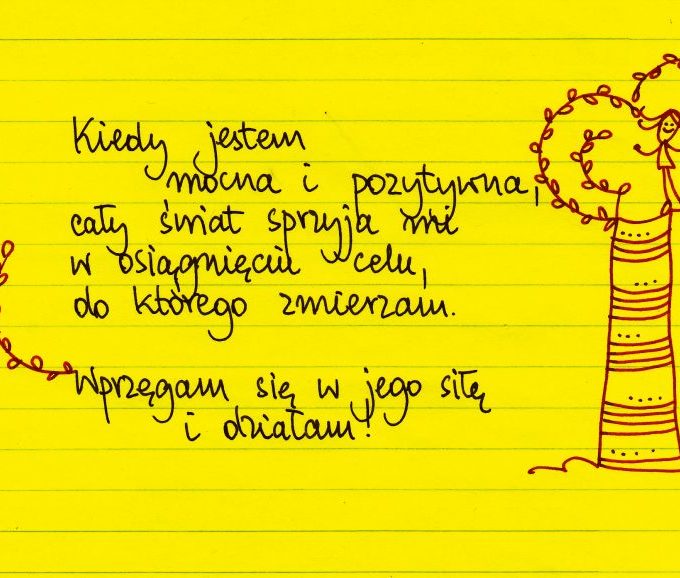 Kiedy jestem
mocna i pozytywna,
cały świat sprzyja mi
w osiągnięciu celu,
do którego zmierzam.
Wprzęgam się w jego siłę
i działam!